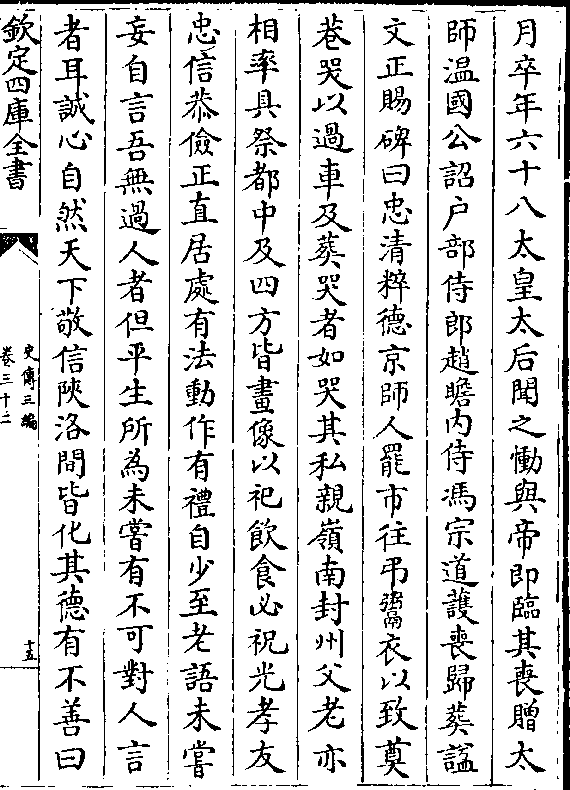 月卒年六十八太皇太后聞之慟與帝即臨其喪贈太
師温國公詔户部侍郎趙瞻内侍馮宗道䕶喪歸葬諡
文正賜碑曰忠清粹德京師人罷市往弔鬻衣以致奠
巷哭以過車及葬哭者如哭其私親嶺南封州父老亦
相率具祭都中及四方皆畫像以祀飲食必祝光孝友
忠信恭儉正直居處有法動作有禮自少至老語未嘗
妄自言吾無過人者但平生所為未嘗有不可對人言
者耳誠心自然天下敬信陜洛間皆化其德有不善曰
欽定四庫全書
史傳三編
卷三十二
十五